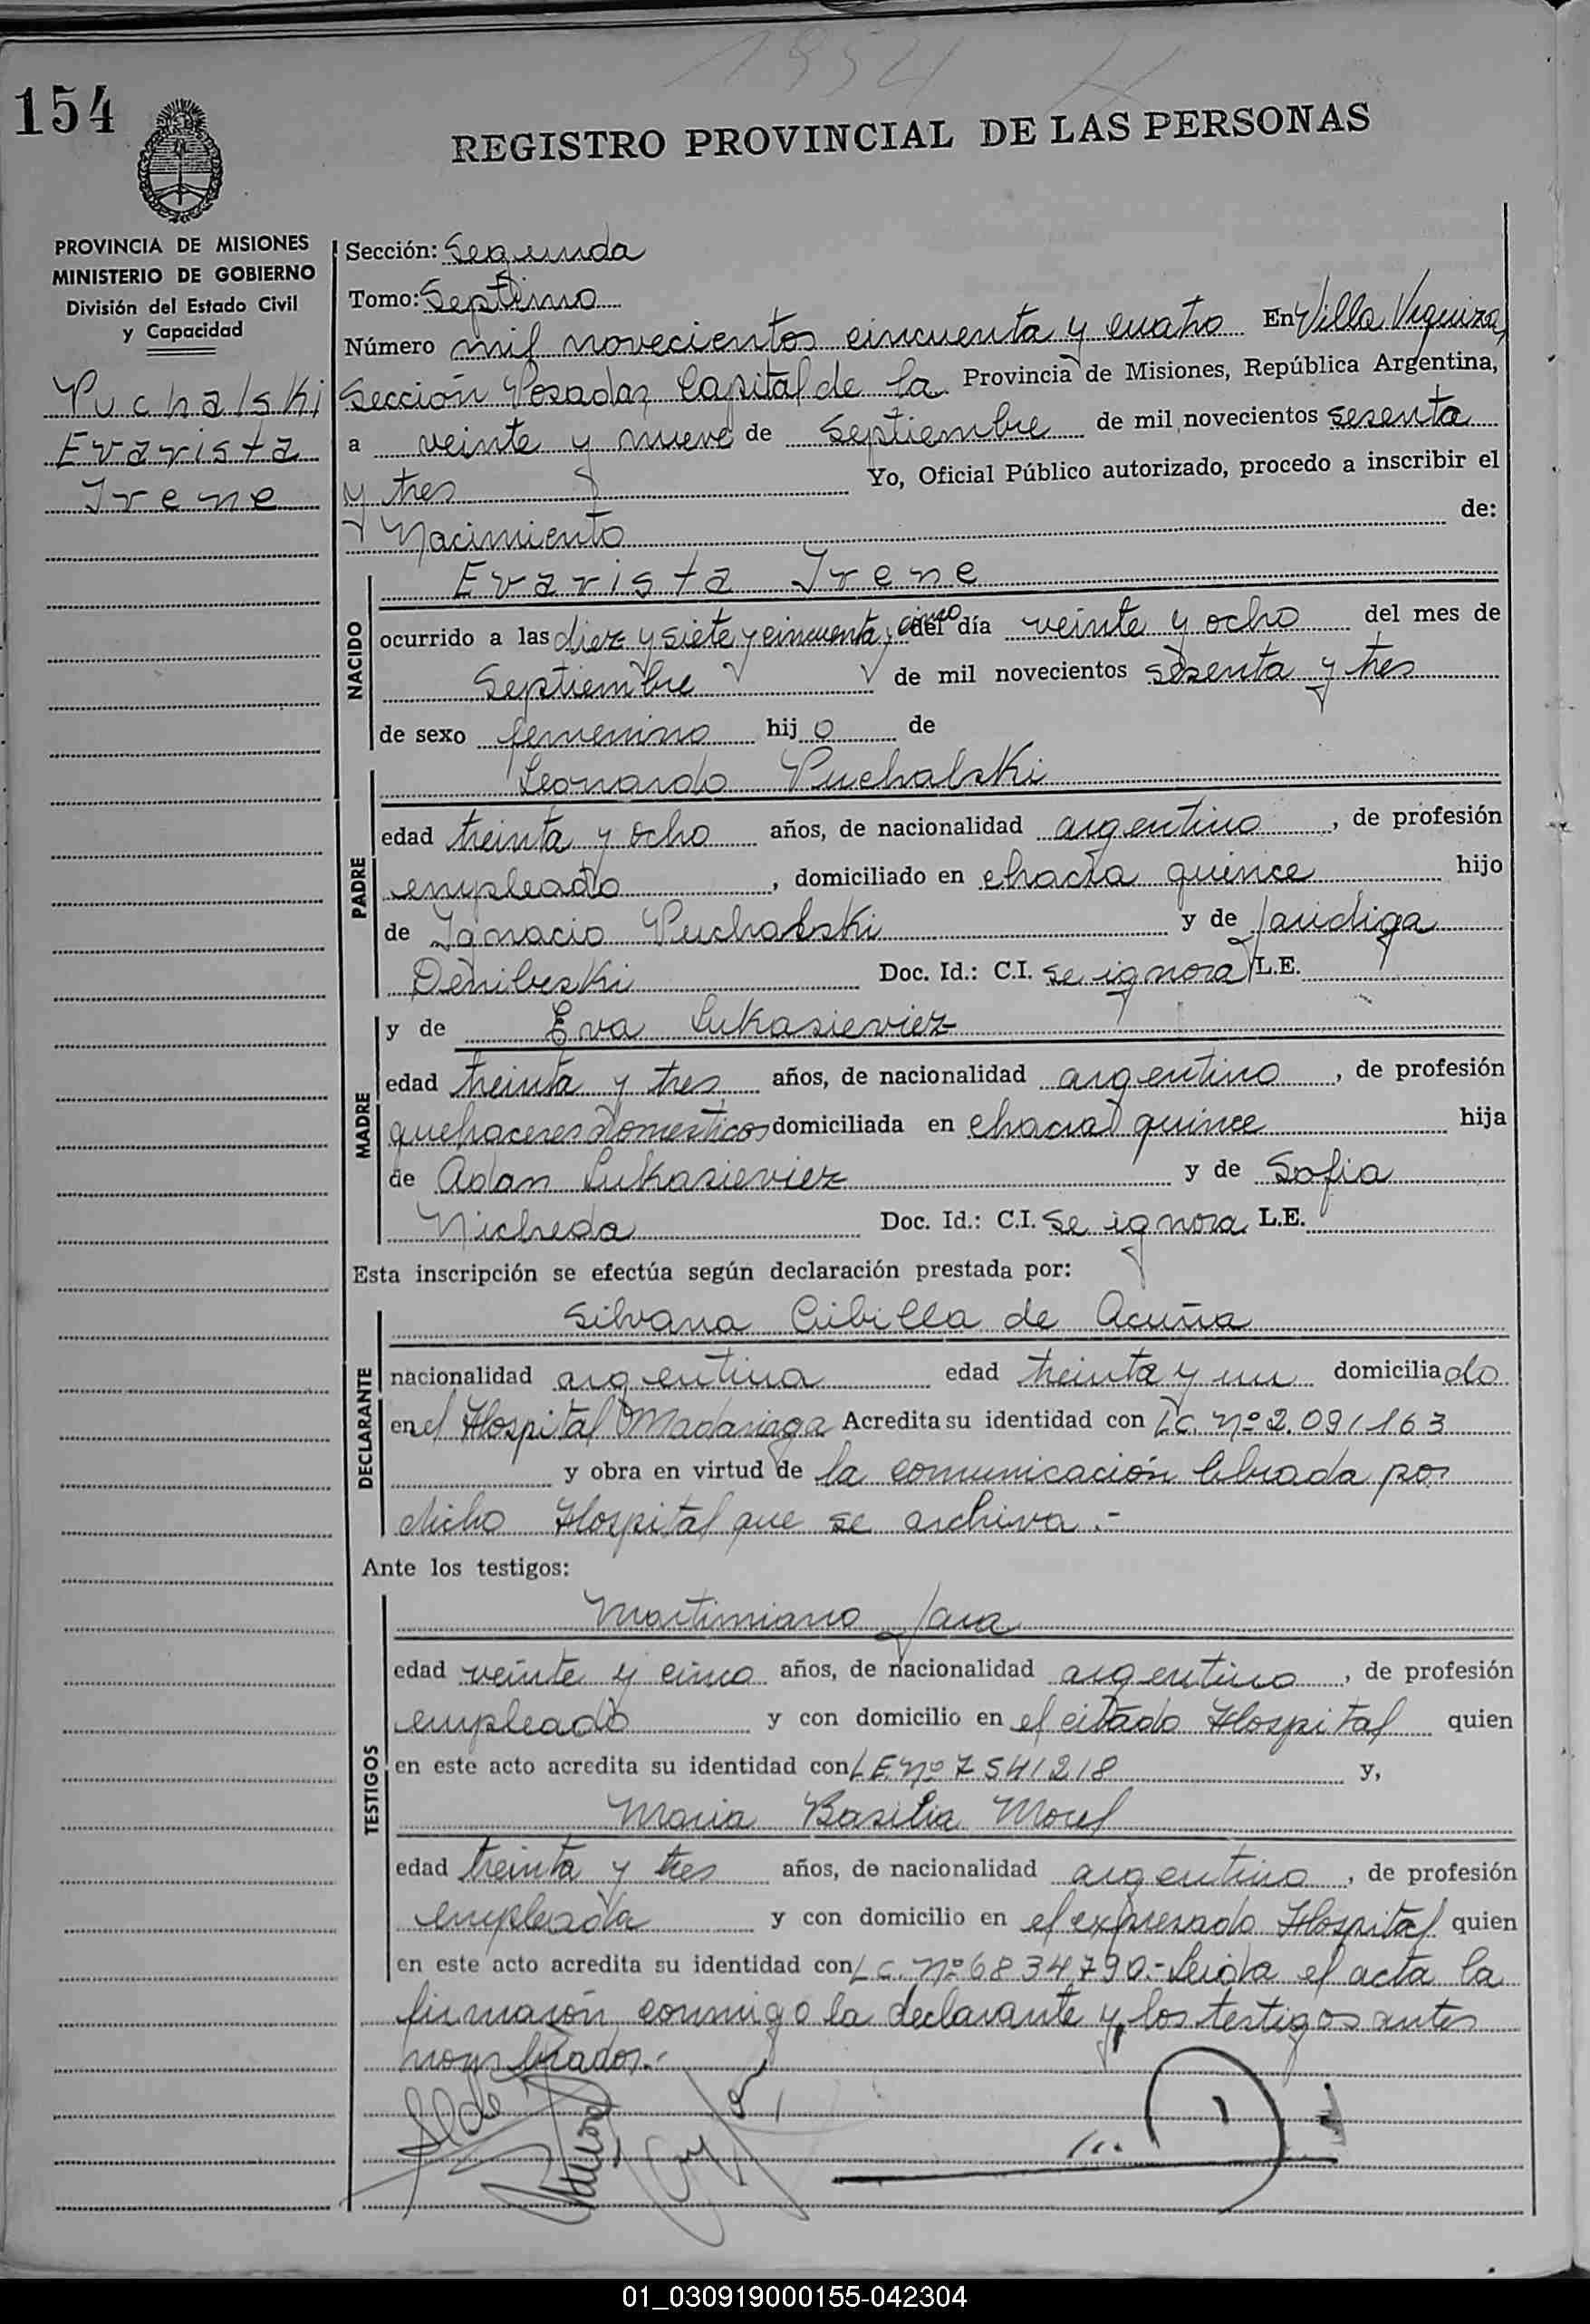 1954
154
REGISTRO PROVINCIAL DE LAS PERSONAS
PROVINCIA DE MISIONES
MINISTERIO DE GOBIERNO
División del Estado Civil
y Capacidad
Puchalski
Evarista
Irene
Sección: Segunda
Tomo: Septimo
Número mil novecientos cincuenta y cuatro En Villa Urquiza,
Sección Posadas, Capital de la Provincia de Misiones, República Argentina,
a veinte y nueve de Septiembre de mil novecientos sesenta
y tres Yo, Oficial Público autorizado, procedo a inscribir el
Nacimiento de:
NACIDO
Evarista Irene
ocurrido a las diez y siete y cincuenta y cinco del día veinte y ocho del mes de
Septiembre de mil novecientos sesenta y tres
de sexo femenino hijo de
PADRE
Leonardo Puchalski
edad treinta y ocho años, de nacionalidad argentino, de profesión
empleado, domiciliado en chacra quince hijo
de Ignacio Puchalski y de Jaudiga
Doc. Id.: C.I. se ignora L.E.
MADRE
y de Eva Lukasieviez
edad treinta y tres años, de nacionalidad argentino, de profesión
quehaceres domesticos domiciliada en chacra quince hija
de Adan Lukasieviez y de Sofia
Nichreda Doc. Id.: C.I. Se ignora L.E.
Esta inscripción se efectúa según declaración prestada por:
DECLARANTE
Silvana Cibilla de Acuña
nacionalidad argentina edad treinta y un domiciliado
en el Hospital Madariaga Acredita su identidad con L.C. Nº 2.091163
y obra en virtud de la comunicación librada por
dicho Hospital que se archiva.-
Ante los testigos:
TESTIGOS
Martimiano Jara
edad veinte y cinco años, de nacionalidad argentino, de profesión
empleado y con domicilio en el citado Hospital quien
en este acto acredita su identidad con L.E. Nº 7541218 y,
Maria Basilia Morel
edad treinta y tres años, de nacionalidad argentino, de profesión
empleada y con domicilio en el expresado Hospital quien
en este acto acredita su identidad con L.C. Nº 6834790.- Leida el acta la
firmarón conmigo la declarante y los testigos antes
nombrados.-
01_030919000155-042304